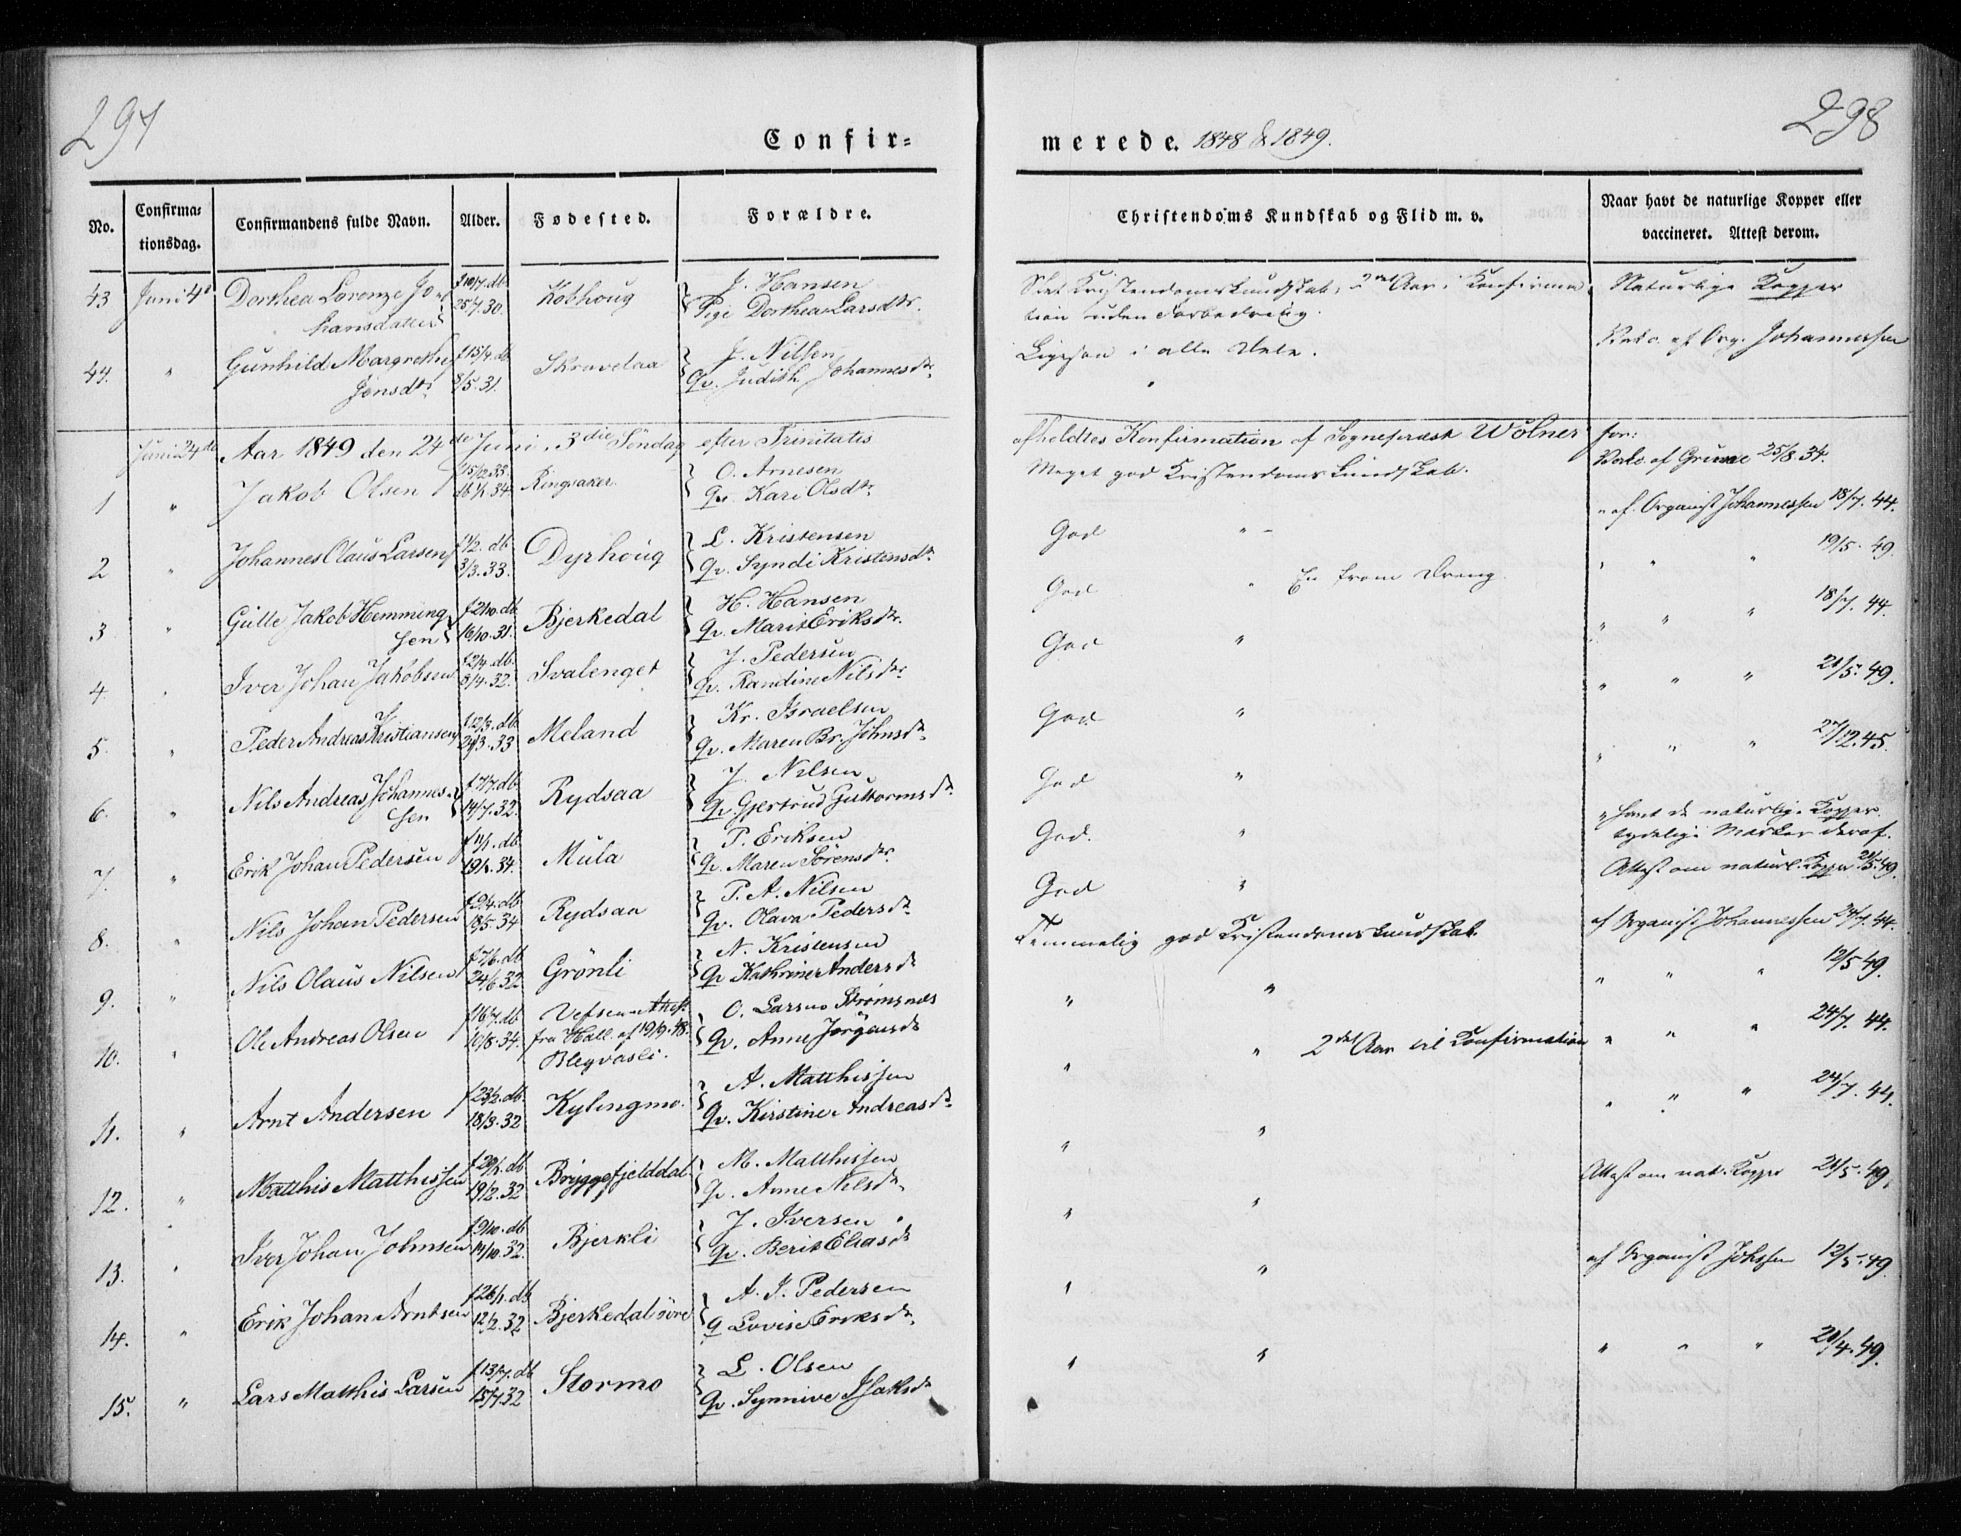 297
298
Confir-
merede. 1848 & 1849.
No.
Confirma-
tionsdag.
Confirmandens fulde Navn.
Alder.
Fødested.
Forældre.
Christendoms Kundskab og Flid m. v.
Naar havt de naturlige Kopper eller
vaccineret. Attest derom.
43 Juni 4d Dorthea Lorenze Jo-
hansdatter
f 10/7. db 25/7. 30. Kobhoug
J. Hansen
Pige Dorthea Larsdtr.
Slet Kristendomskundskab, 2det Aar i Konfirma-
tion uden Forbedring.
Naturlige Kopper
44. " Gunhild Margrethe
Jensdtr.
f 15/4. db 8/5. 31. Skravelaa
J. Nilsen
Qv. Judith Johannesdtr.
Ligesaa i alle Dele.
Vakc. af Org. Johannessen
Juni 24de Aar 1849 den 24de Juni, 3die Söndag efter Trinitatis afholdtes Konfirmation af Sogneprest Wolner for:
1 " Jakob Olsen f 15/12 33. db 6/1. 34. Ringsaker.
O. Arnesen
Qv. Kari Olsdtr.
Meget god Kristendomskundskab.
Vakc. af Grime 25/8. 34.
2 " Johannes Olaus Larsen db 3/3. 33. Dyrhoug
L. Kristensen
Qv. Syndi Kristensdtr.
God " -
" af Organist Johannessen 18/7. 44.
3 " Gulle Jakob Hemming
sen
f 2/10. db 16/10. 31. Bjerkedal
H. Hansen
Qv. Marit Eriksdtr.
God " En from Dreng.
" " " 19/5. 49.
4. " Iver Johan Jakobsen f 2/4. db 8/4. 32. Svalenget
J. Pedersen
Qv. Randine Nilsdtr.
God "
" " " 18/7. 44.
5. " Peder Andreas Kristiansen f 12/3. db 24/3. 33 Meland
Kr. Israelsen
Qv. Maren Br. Johnsdtr.
God "
" " " 21/5. 49.
6. " Nils Andreas Johannes-
sen
f 7/7. db 14/7. 32. Rydsaa
J. Nilsen
Qv. Gjertrud Guttormsdtr.
God "
" " " 27/12. 45.
7. " Erik Johan Pedersen db 19/1. 34. Mula
P. Eriksen
Qv. Maren Sörensdtr.
God. "
" havt de naturlige Kopper
tydelige Mærker deraf.
8. " Nils Johan Pedersen f 9/4. db 18/5. 34 Rydsaa
P. A. Nilsen
Qv. Olava Pedersdtr.
God "
Attest om naturl. Kopper 21/5. 49.
9. " Nils Olaus Nilsen f 7/6. db 24/6. 32 Grönli
N. Kristensen
Qv. Kathrine Andersdtr.
Temmelig god Kristendomskundskab
af Organist Johannessen 24/7. 44.
10. " Ole Andreas Olsen f 16/7. db 10/8. 34. Vefsen Attest
fra Hall af 19/9. 48.
O. Larsen Strömsnes
Qv. Anne Jörgensdtr.
" "
" " " 12/5 49.
11. " Arnt Andersen f 23/2. db 18/3. 32 Kylingmo.
A. Matthissen
Qv. Kirstine Andreasdtr.
" " 2det Aar til Konfirmation
" " " 24/7. 44.
12. " Matthis Matthissen f 29/1. db 19/2. 32 Bryggefjelddal
M. Matthissen
Qv. Anne Nilsdtr.
" "
" " " 24/7. 44.
13. " Iver Johan Johnsen f 9/10. db 14/10. 32. Bjerkli
J. Iversen
Qv. Berit Eliasdtr.
" "
Attest om nat. Kopper 21/5. 49.
14. " Erik Johan Arntsen f 26/1. db 12/2. 32 Bjerkedal övre
A. J. Pedersen
Q Lovise Eriksdtr.
" "
af Organist Johssen 12/5. 49.
15. " Lars Matthis Larsen f 13/7. db 15/7. 32 Stormo
L. Olsen
Qv. Synnive Isaksdtr
" "
" " " 21/4. 49.